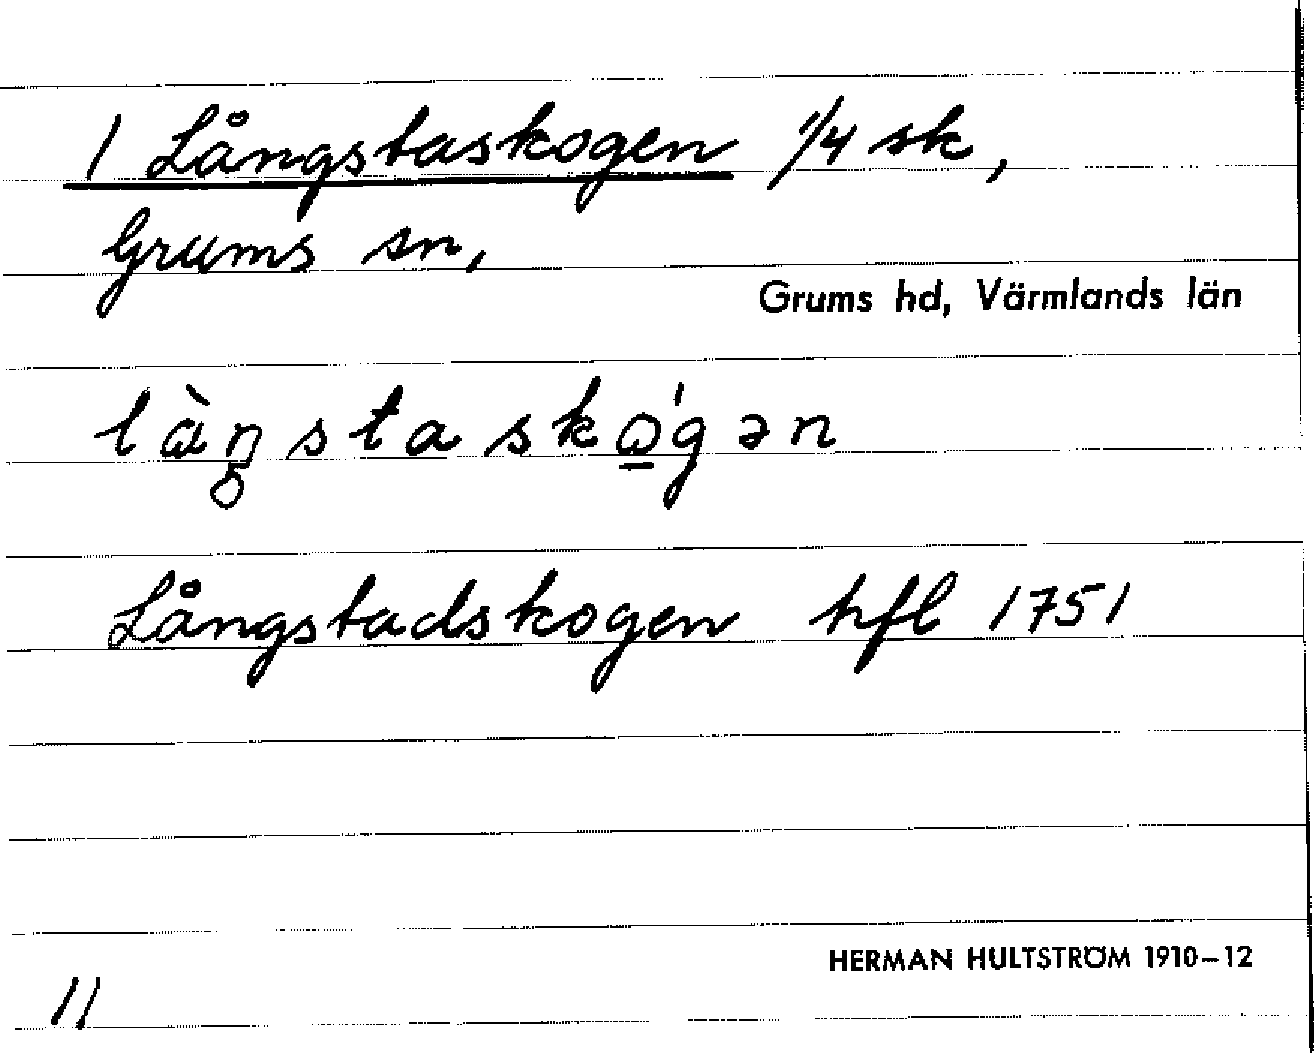 1 Långstaskogen 1/4 sk,
Grums sn,
Grums hd, Värmlands län
là̊ŋstaskó̲gən
Långstadskogen hfl 1751
HERMAN HULTSTRÖM 1910–12
11